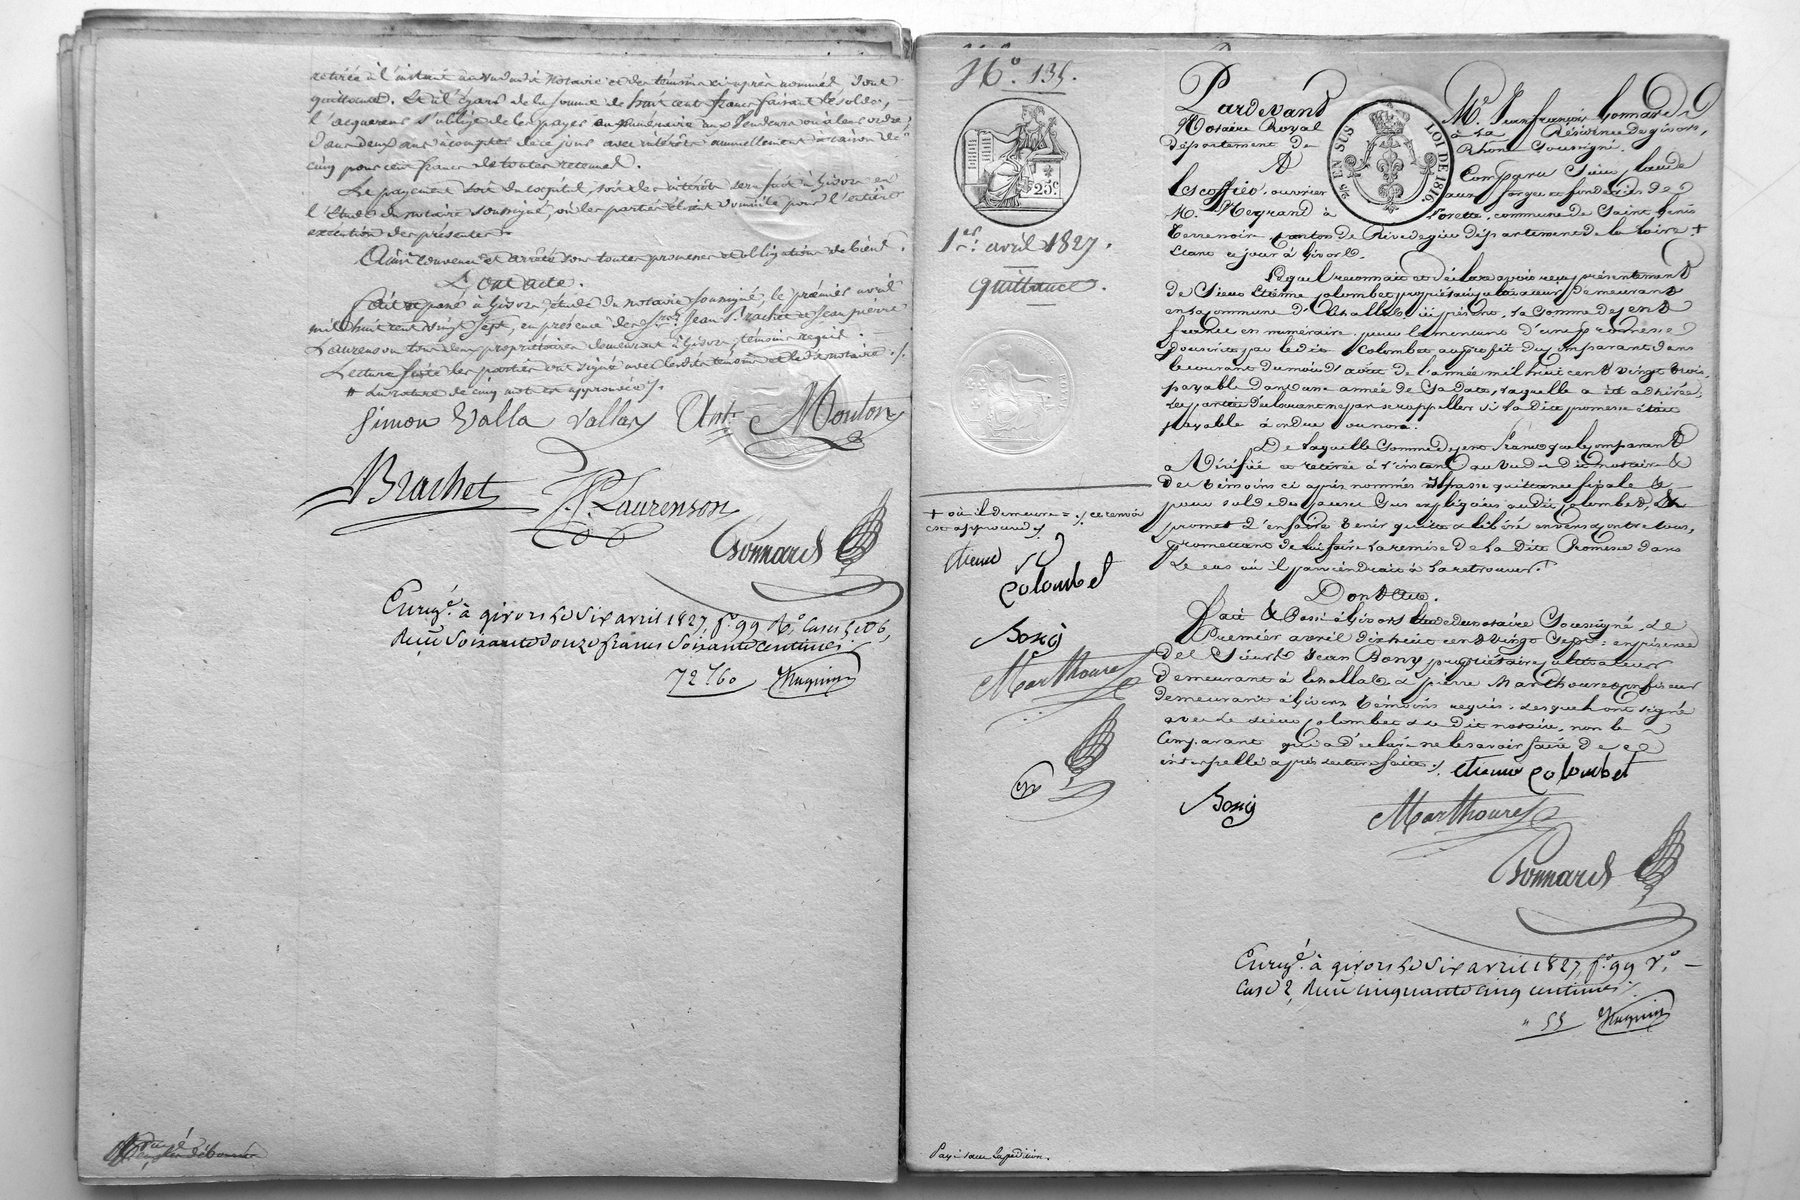 retirée à l'instant au vu dudit notaire et des témoins ci après nommés dont
quittance. Et à l'égard de la somme de huit cent francs faisant le solde,
l'acquéreur s'oblige de les payer en numéraire aux vendeurs ou à leur ordre
dans deux ans à compter de ce jour avec intérêts annuellement à raison de
cinq pour cent francs de toutes retenues.
Le payement soit du capital, soit des intérêts sera fait à Givors en
l'étude du notaire soussigné, où les parties élisent domicile pour l'entière
exécution des présentes.
Ainsi convenu et arrêté sous toutes promesses et obligations de biens.
Dont acte.
Fait et passé à Givors, étude du notaire soussigné, le premier avril
mil huit cent vingt sept, en présence des Srs Jean Brachet et Jean pierre
Laurenson tous deux propriétaires demeurant à Givors, témoins requis.
Lecture faite les parties ont signé avec lesdits témoins et le dit notaire ./.
# La rature de cinq mots est approuvée /.
Simon Valla Vallas Ant. Mouton
Brachet J.P. Laurenson
Bonnard
Enregé. à givors le six avril 1827, fo. 99 Ro. cases 5 et 6,
Reçu soixante douze francs soixante centimes
72 f 60
No. 135.
25c
EN SUS
LOI DE 1816
1er avril 1827.
quittance.
Pardevant Me. Jean françois Bonnard
Notaire Royal à la Résidence de givors,
département du Rhône soussigné,
A Comparu Sieur Claude
Escoffier, ouvrier aux forges et fonderies de
M. Negrand à Lorette, commune de Saint Genis
terrenoire canton de Rivedegier département de la Loire +
Etant ce jour à Givors.
Lequel reconnait et déclare avoir reçu présentement
de Sieur Etienne Colombet propriétaire cultivateur demeurant
en la commune d'Echallas ici présent, la somme de cent
francs en numéraire pour le montant d'une promesse
souscrite par le dit Colombet au profit du comparant dans
le courant du mois d'août de l'année mil huit cent vingt trois,
payable dans une année de sa date, laquelle a été adhirée,
les parties déclarant ne pas se rappeller si la dite promesse était
payable à ordre ou non.
De laquelle somme de cent francs que le comparant
a vérifiée et retirée à l'instant au vu du dit notaire &
des témoins ci après nommés il passe quittance finale &
pour solde des causes sus expliquées audit Colombet,
promet d'en faire tenir quitte & libéré envers & contre tous,
promettant de lui faire la remise de la dite Promesse dans
le cas où il parviendrait à la retrouver.
Dont Acte.
Fait & Passé à Givors étude du notaire soussigné, le
Premier avril dix huit cent vingt Sept; en présence
des Sieurs Jean Bony propriétaire cultivateur
demeurant à Echallas & pierre Marthouret confiseur
demeurant à Givors témoins requis. lesquels ont signé
avec le sieur Colombet & le dit notaire, non le
comparant qui a déclaré ne le savoir faire de ce
interpellé après lecture faite ./. etienne colombet
+ où il demeure = ./. ce renvoi
est approuvé ./.
etienne
colombet
Bony
Marthouret
Bony Marthouret
Bonnard
Enregé. à givors le six avril 1827, fo. 99 Vo.
case 2, Reçu cinquante cinq centimes
" 55